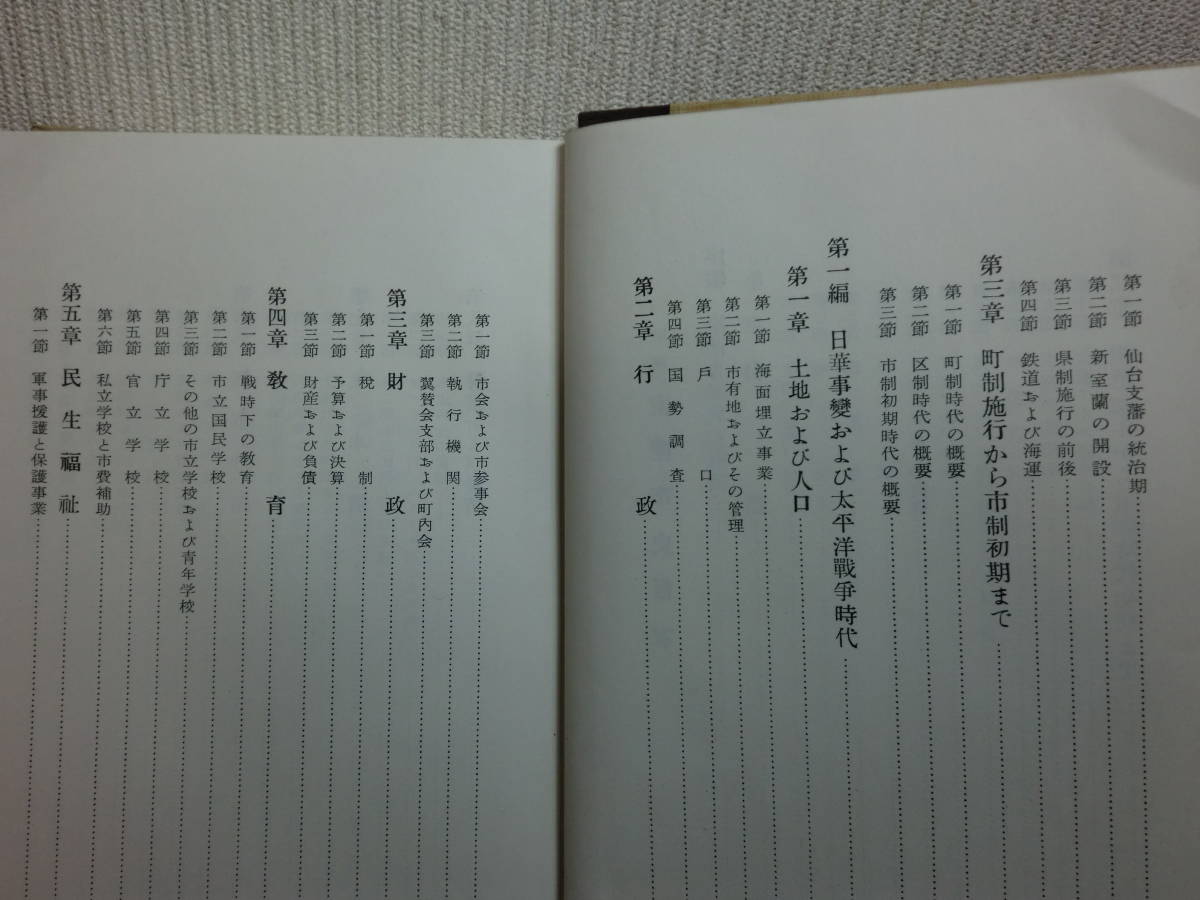 第一節　仙台支藩の統治期
第二節　新室蘭の開設
第三節　県制施行の前後
第四節　鉄道および海運
第三章　町制施行から市制初期まで
第一節　町制時代の概要
第二節　区制時代の概要
第三節　市制初期時代の概要
第一編　日華事變および太平洋戰爭時代
第一章　土地および人口
第一節　海面埋立事業
第二節　市有地およびその管理
第三節　戶口
第四節　国勢調査
第二章　行政
第一節　市会および市参事会
第二節　執行機関
第三節　翼賛会支部および町内会
第三章　財政
第一節　税制
第二節　予算および決算
第三節　財産および負債
第四章　教育
第一節　戦時下の教育
第二節　市立国民学校
第三節　その他の市立学校および青年学校
第四節　庁立学校
第五節　官立学校
第六節　私立学校と市費補助
第五章　民生福祉
第一節　軍事援護と保護事業